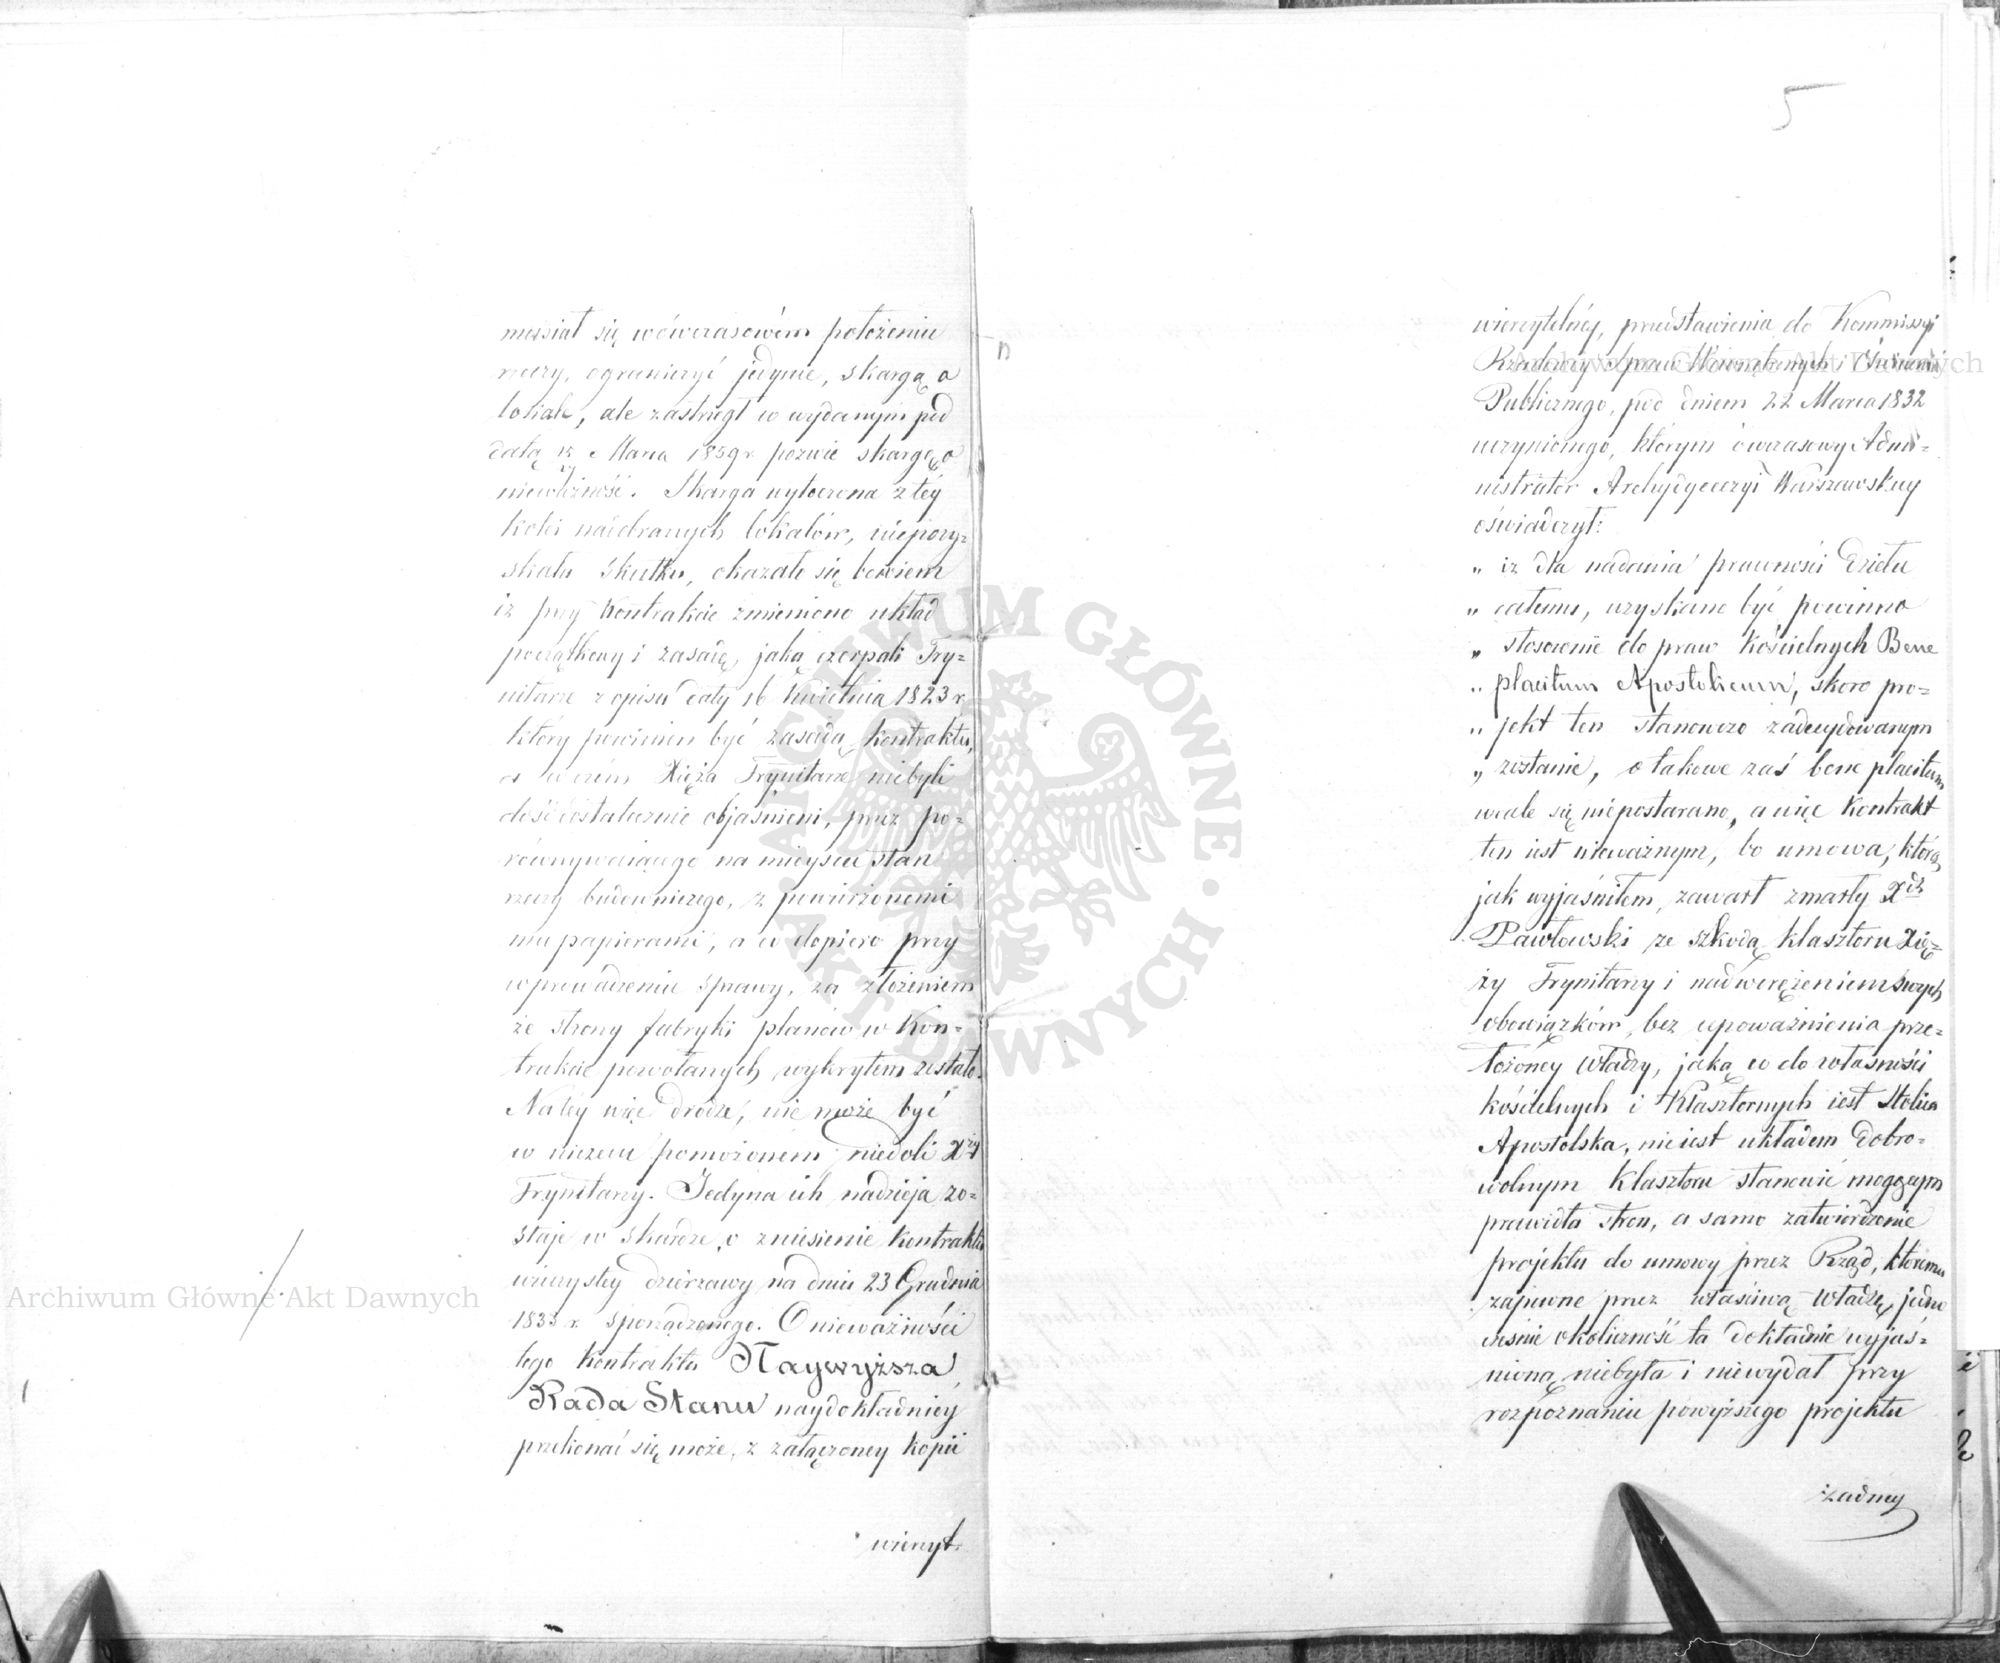 musiał się wówczasowém położeniu
rzeczy, ograniczyć jedynie, skargą o
lokale, ale zastrzegł w wydanym pod
datą 15 Marca 1859 r. pozwie skargę o
nieważność. Skarga wytoczona z téy
kolei nadebranych lokalów, niepozy-
skała skutku, okazało się bowiem
iż przy kontrakcie zmieniono układ
początkowy i zasadę, jaką czerpali Try-
nitarze z opisu daty 16 Kwietnia 1823 r.
który powinien być zasadą kontraktu,
o czém Xięża Trynitarze niebyli
dość dostatecznie objaśnieni, przez po-
równywaiącego na mieyscu stan
rzeczy budowniczego, z powierzonemi
mu papierami, a co dopiero przy
wprowadzeniu sprawy, za złożeniem
ze strony fabryki planów w Kon-
trakcie powołanych wykrytem zostało.
Na téy więc drodze, nie może być
w niczem pomożonem niedoli Xży
Trynitarzy. Jedyna ich nadzieja zo-
staje w skardze o zniesienie kontraktu
wieczystey dzierżawy na dniu 23 Grudnia
1833 r. sporządzonego. O nieważności
tego kontraktu Naywyższa
Rada Stanu naydokładniéy
przekonać się może, z załączoney kopii
wierzyt-
5
wierzytelnéy, przedstawienia do Kommissyi
Rządowéy Spraw Wewnętrznych i Oświecenia
Publicznego, pod dniem 22 Marca 1832
uczynionego, którym ówczasowy Admi-
nistrator Archydyecezyi Warszawskiey
oświadczył:
„ iż dla nadania prawności dziełu
„ całemu, uzyskane być powinno
„ stosownie do praw kościelnych Bene
„ placitum Apostolicum, skoro pro-
„ jekt ten stanowczo zadecydowanym
„ zostanie, o takowe zaś bene placitum
wcale się niepostarano, a więc kontrakt
ten iest nieważnym, bo umowa, którą,
jak wyjaśniłem, zawarł zmarły Xdz
Pawłowski ze szkodą klasztoru Xię-
ży Trynitarzy i nadwerężeniem swych
obowiązków, bez upoważnienia prze-
łożoney władzy, jaką co do własności
kościelnych i klasztornych iest Stolica
Apostolska, nie iest układem dobro-
wolnym klasztoru stanowić mogącym
prawidła stron, a samo zatwierdzenie
projektu do umowy przez Rząd, któremu
zapewne przez właściwą Władzę jedno
cześnie okoliczność ta dokładnie wyjaś-
nioną niebyła i niewydał przy
rozpoznaniu powyższego projektu
żadnéy
Archiwum Główne Akt Dawnych
Archiwum Główne Akt Dawnych
ARCHIWUM GŁÓWNE · AKT DAWNYCH ·